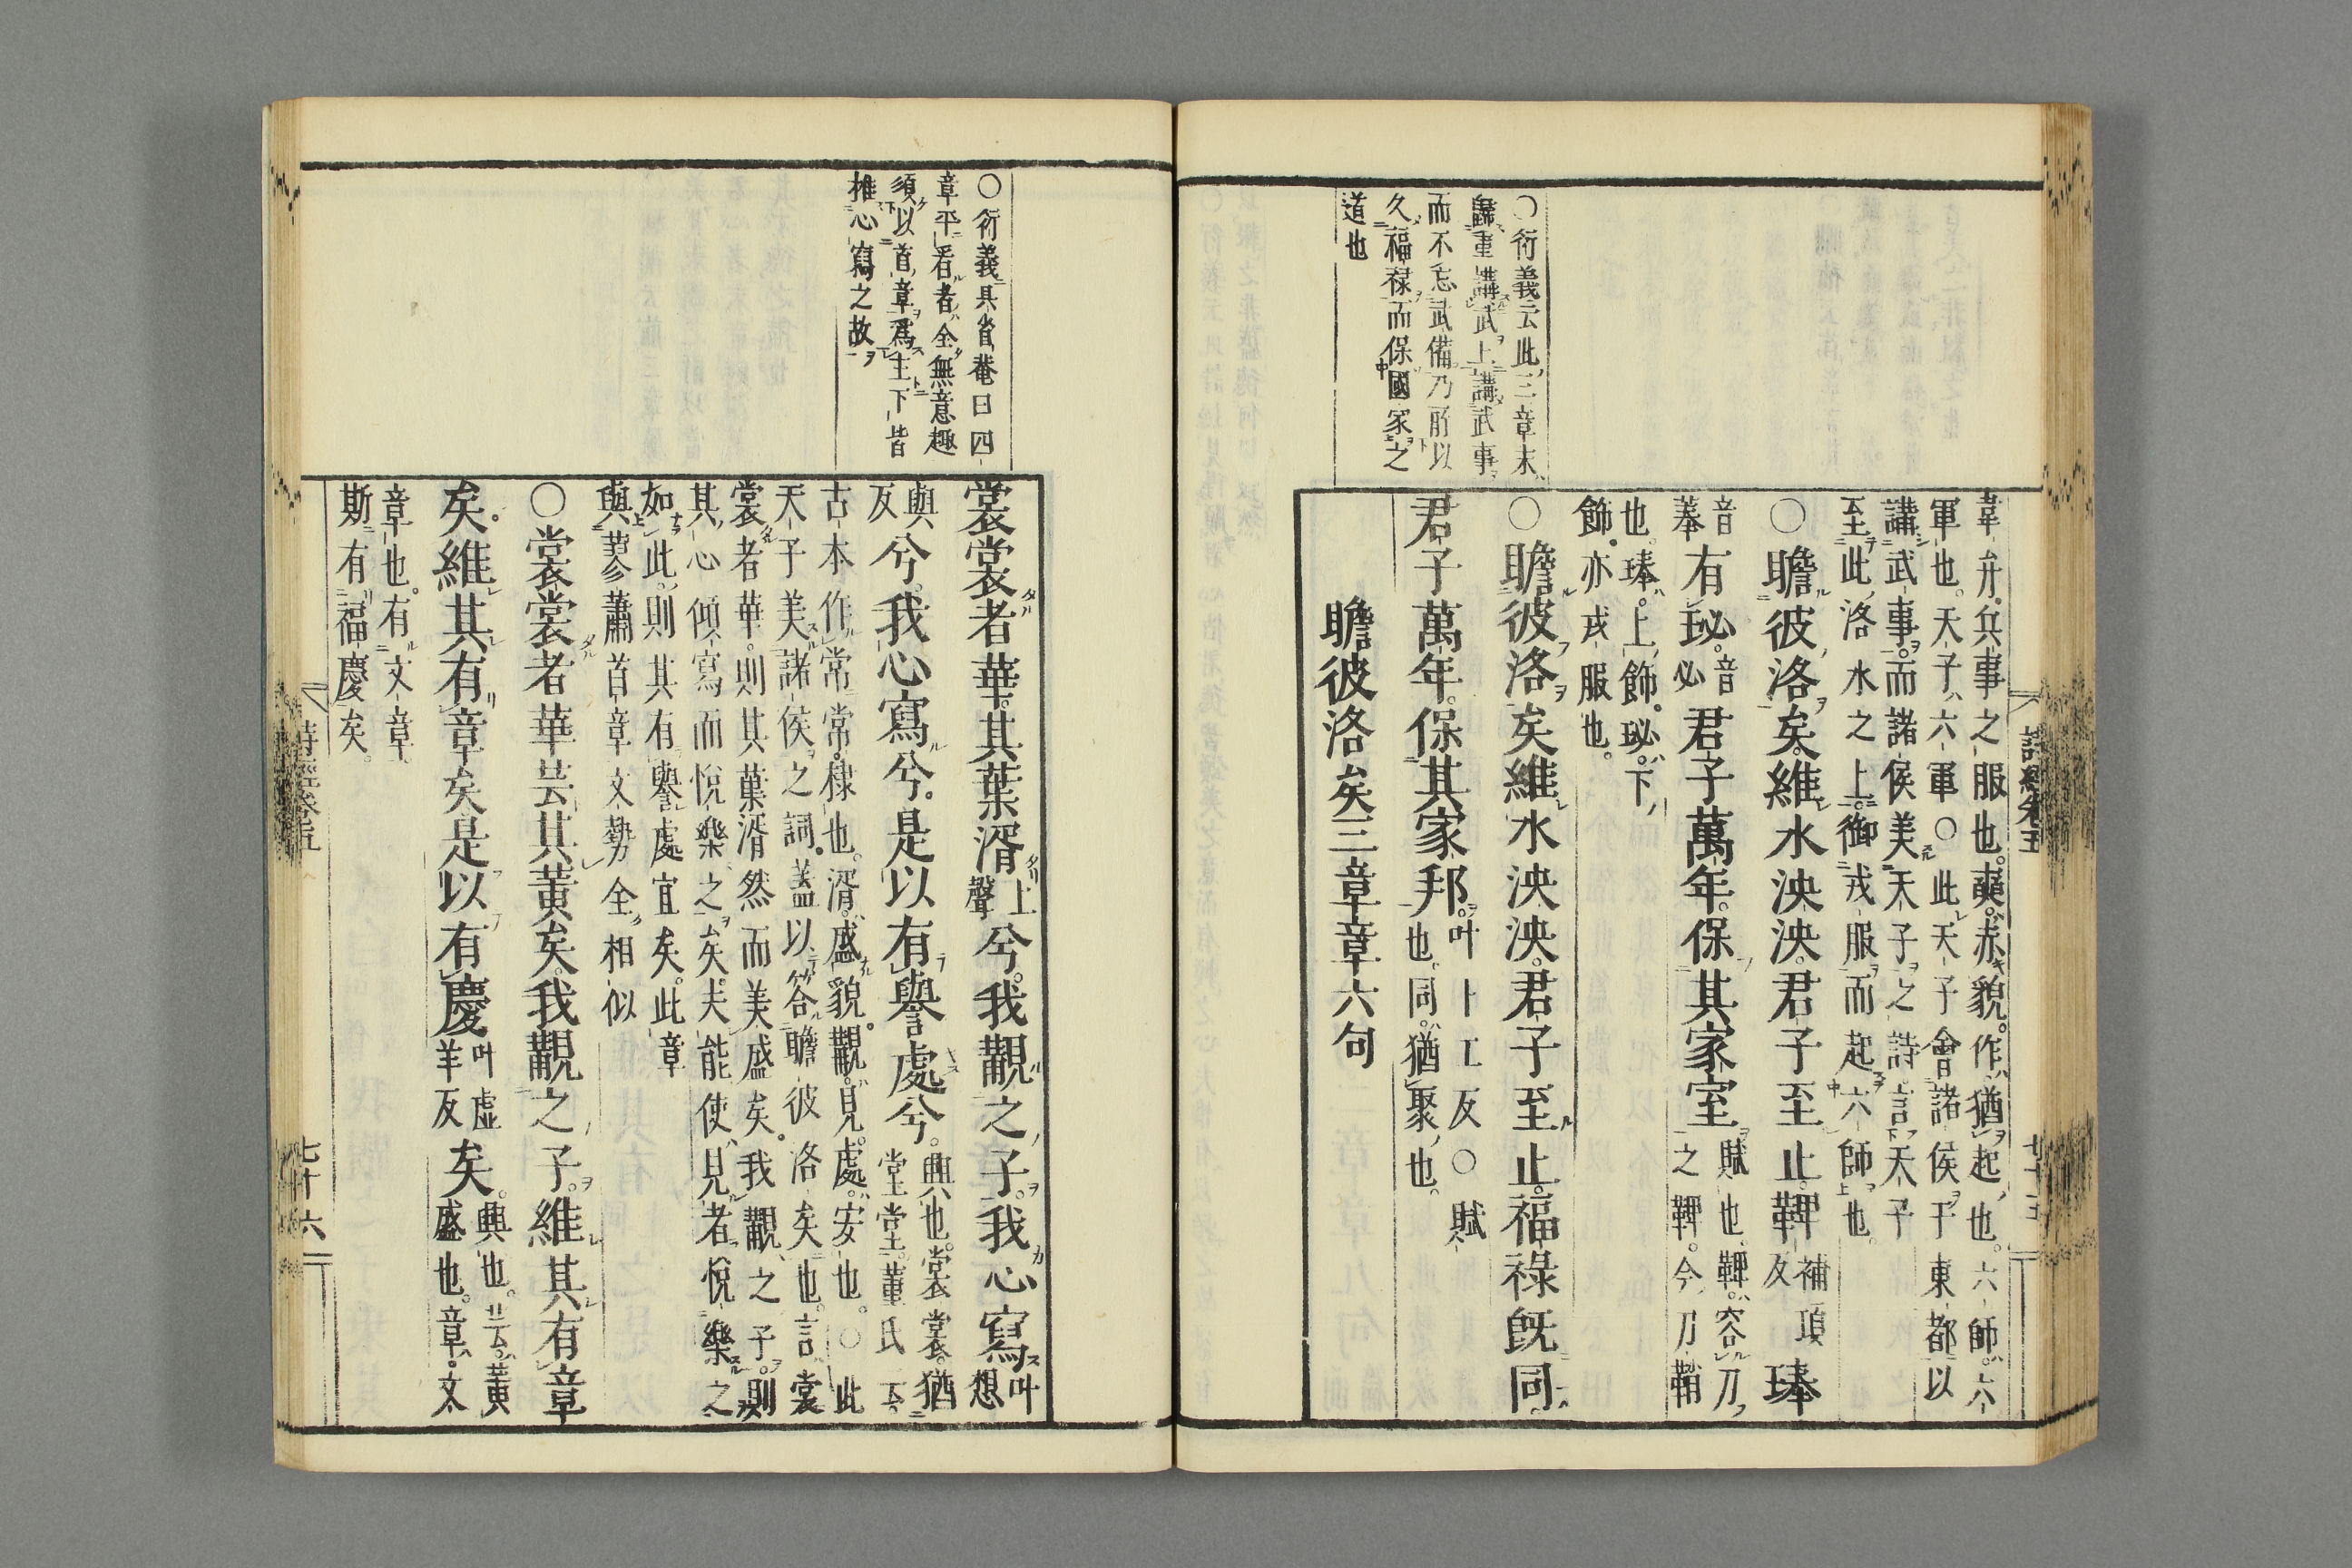 ○衍義云此三章末
歸重講武上講武事
而不忘武備乃所以
久福祿而保國家之
道也
韋弁。兵事之服也。奭。赤貌。作。猶起也。六師。六
軍也。天子六軍○此天子會諸侯于東都以
講武事。而諸侯美天子之詩。言天子
至此洛水之上。御戎服而起六師也。
○瞻彼洛矣。維水泱泱。君子至止。鞞補頂反琫
音菶有珌。音必君子萬年。保其家室。賦也。鞞。容刀之鞞。今刀鞘
也。琫。上飾。珌。下
飾。亦戎服也。
○瞻彼洛矣。維水泱泱。君子至止。福祿既同。
君子萬年。保其家邦。叶卜工反○賦也。同。猶聚也。
瞻彼洛矣三章章六句
詩經卷五
七十五
○衍義具省菴曰四
章平看者全無意趣
須以首章爲主下皆
推心寫之故
裳裳者華。其葉湑上聲兮。我覯之子。我心寫叶想
與反兮。我心寫兮。是以有譽處兮。興也。裳裳。猶堂堂。董氏云。
古本作常。常棣也。湑。盛貌。覯。見。處。安也。○此
天子美諸侯之詞。蓋以答瞻彼洛矣也。言裳
裳者華。則其葉湑然而美盛矣。我覯之子。則
其心傾寫而悅樂之矣。夫能使見者悅樂之
如此。則其有譽處宜矣。此章
與蓼蕭首章文勢全相似
○裳裳者華。芸其黃矣。我覯之子。維其有章
矣。維其有章矣。是以有慶叶虛羊反矣。興也。芸。黃盛也。章。文
章也。有文章。
斯有福慶矣。
詩經卷五
七十六